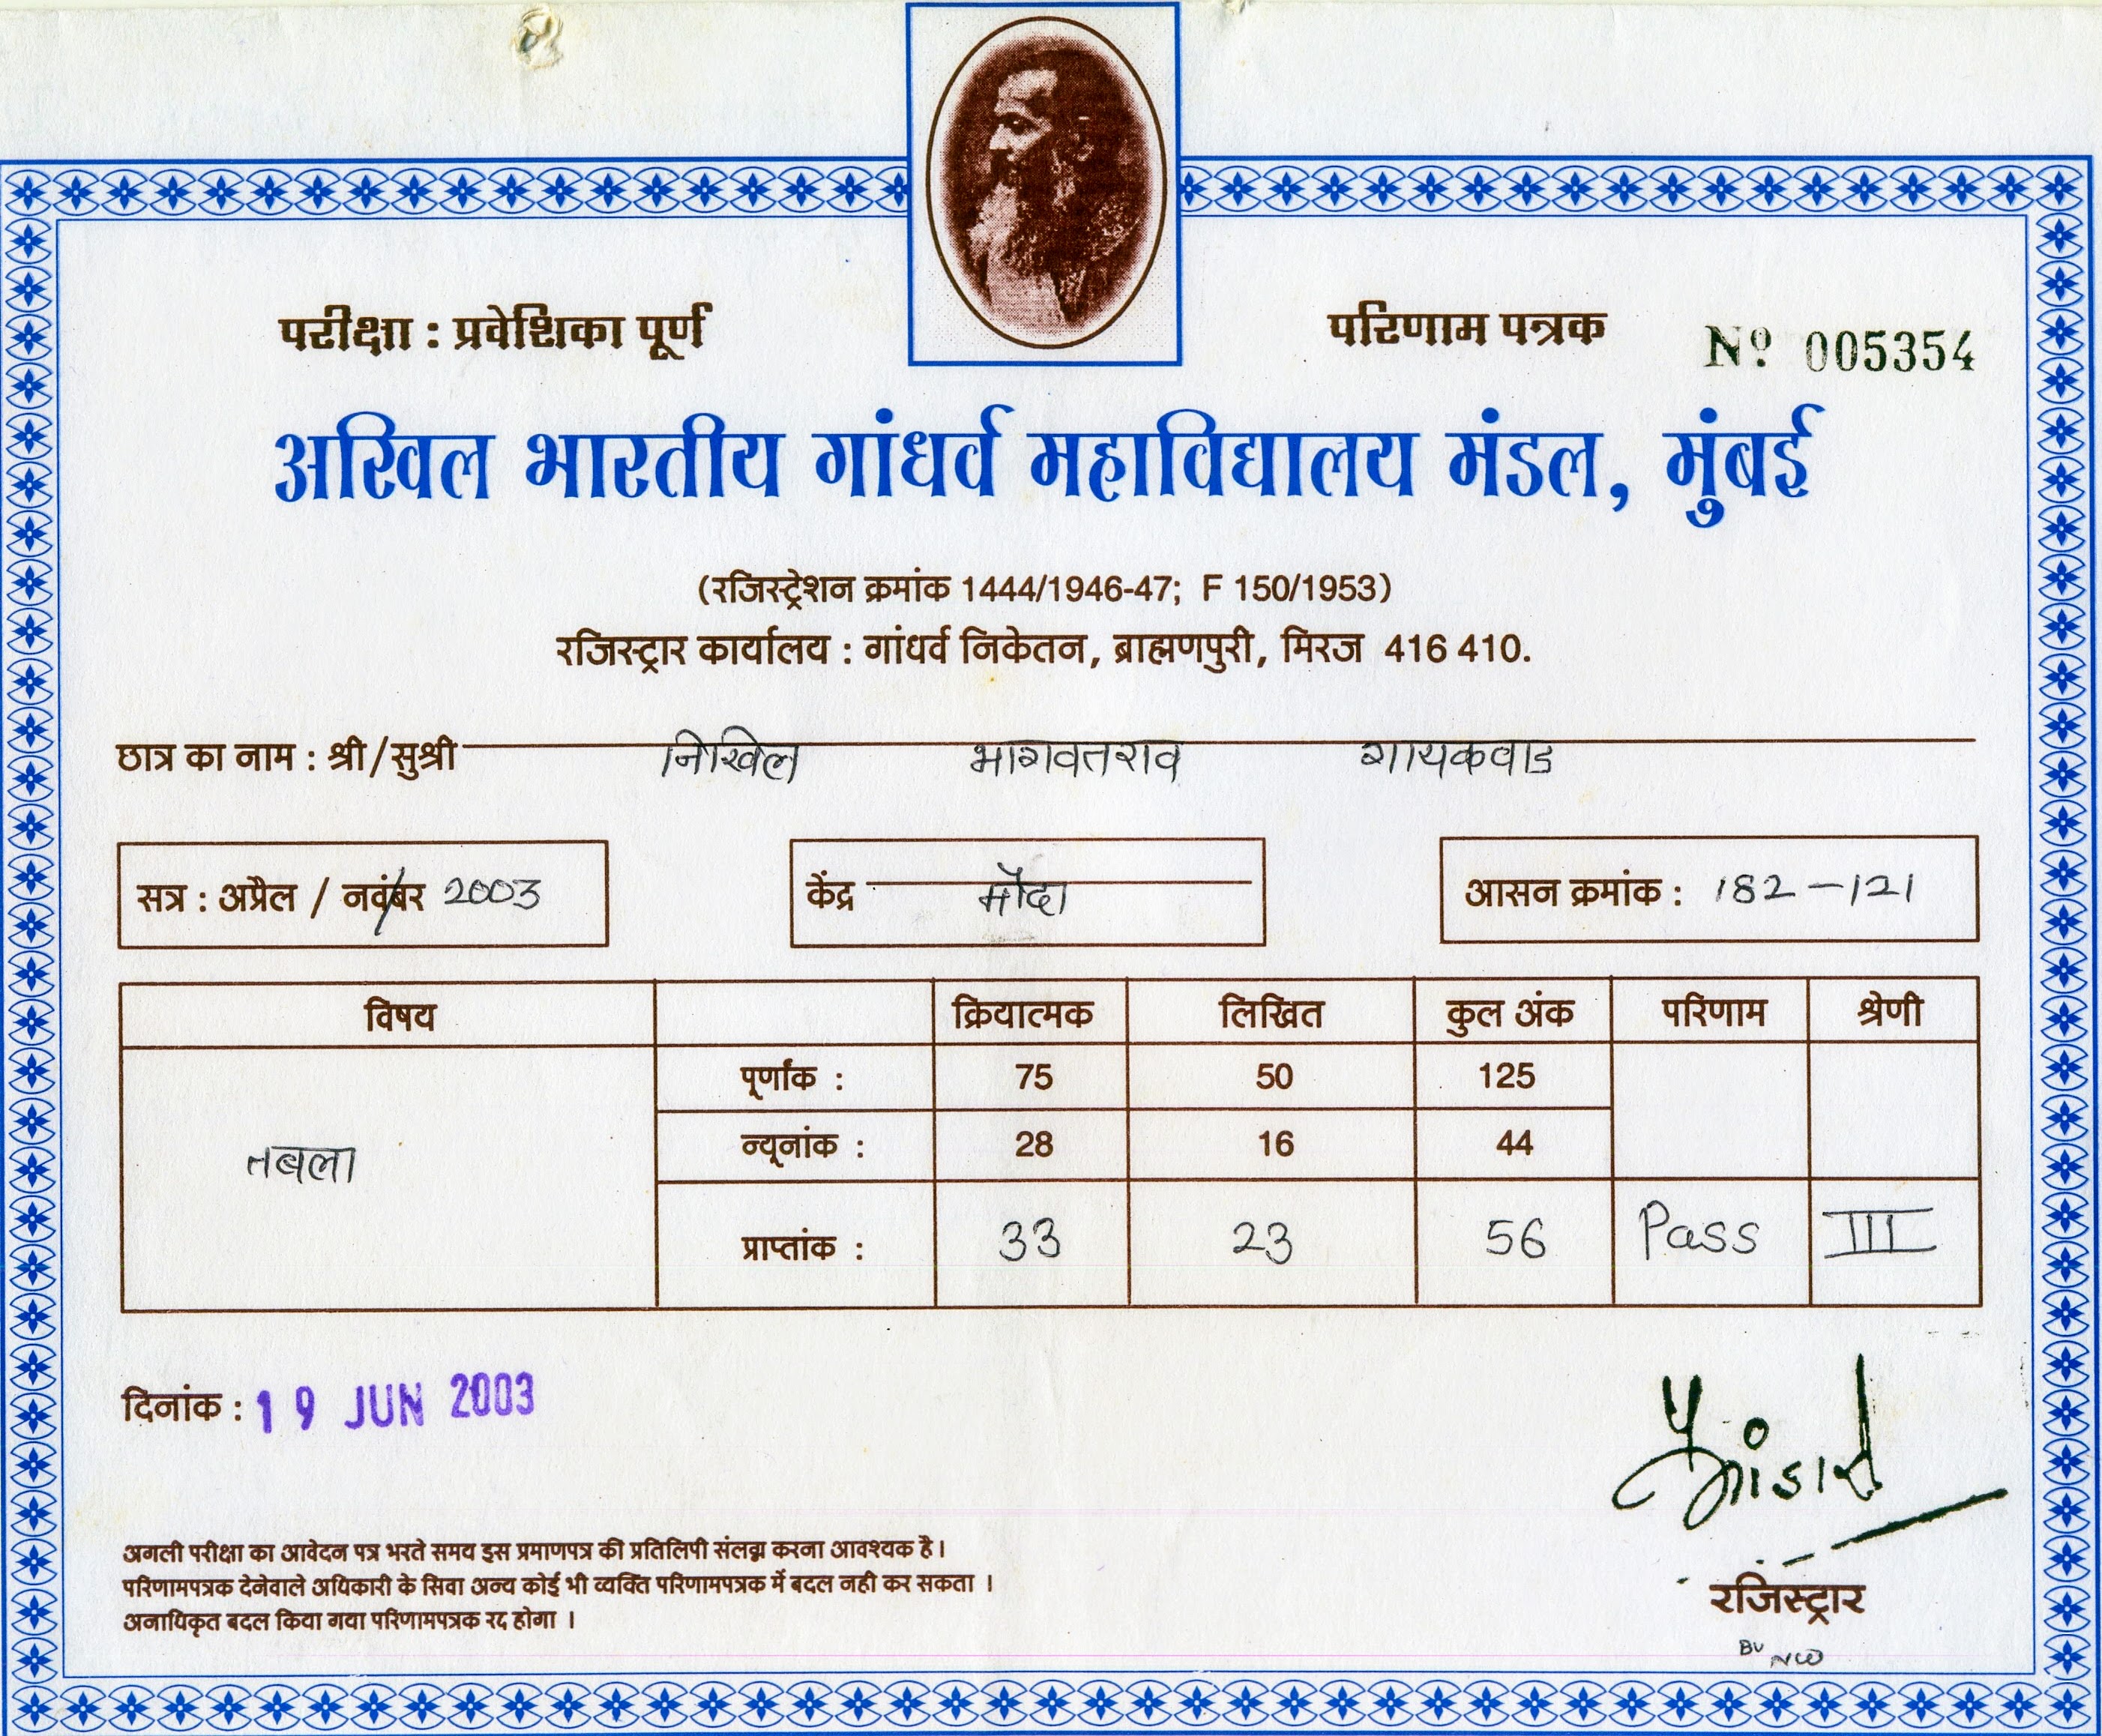 परीक्षा : प्रवेशिका पूर्ण
परिणाम पत्रक
Nº 005354
अखिल भारतीय गांधर्व महाविद्यालय मंडल, मुंबई
(रजिस्ट्रेशन क्रमांक 1444/1946-47; F 150/1953)
रजिस्ट्रार कार्यालय : गांधर्व निकेतन, ब्राह्मणपुरी, मिरज 416 410.
छात्र का नाम : श्री/सुश्री निखिल भागवतराव गायकवाड
सत्र : अप्रैल / नवंबर 2003
केंद्र
आसन क्रमांक : 182-121
विषय क्रियात्मक लिखित कुल अंक परिणाम श्रेणी
पूर्णांक : 75 50 125
न्यूनांक : 28 16 44
तबला
प्राप्तांक : 33 23 56 Pass III
दिनांक : 19 JUN 2003
अगली परीक्षा का आवेदन पत्र भरते समय इस प्रमाणपत्र की प्रतिलिपी संलग्न करना आवश्यक है।
परिणामपत्रक देनेवाले अधिकारी के सिवा अन्य कोई भी व्यक्ति परिणामपत्रक में बदल नही कर सकता ।
अनाधिकृत बदल किया गया परिणामपत्रक रद होगा ।
रजिस्ट्रार